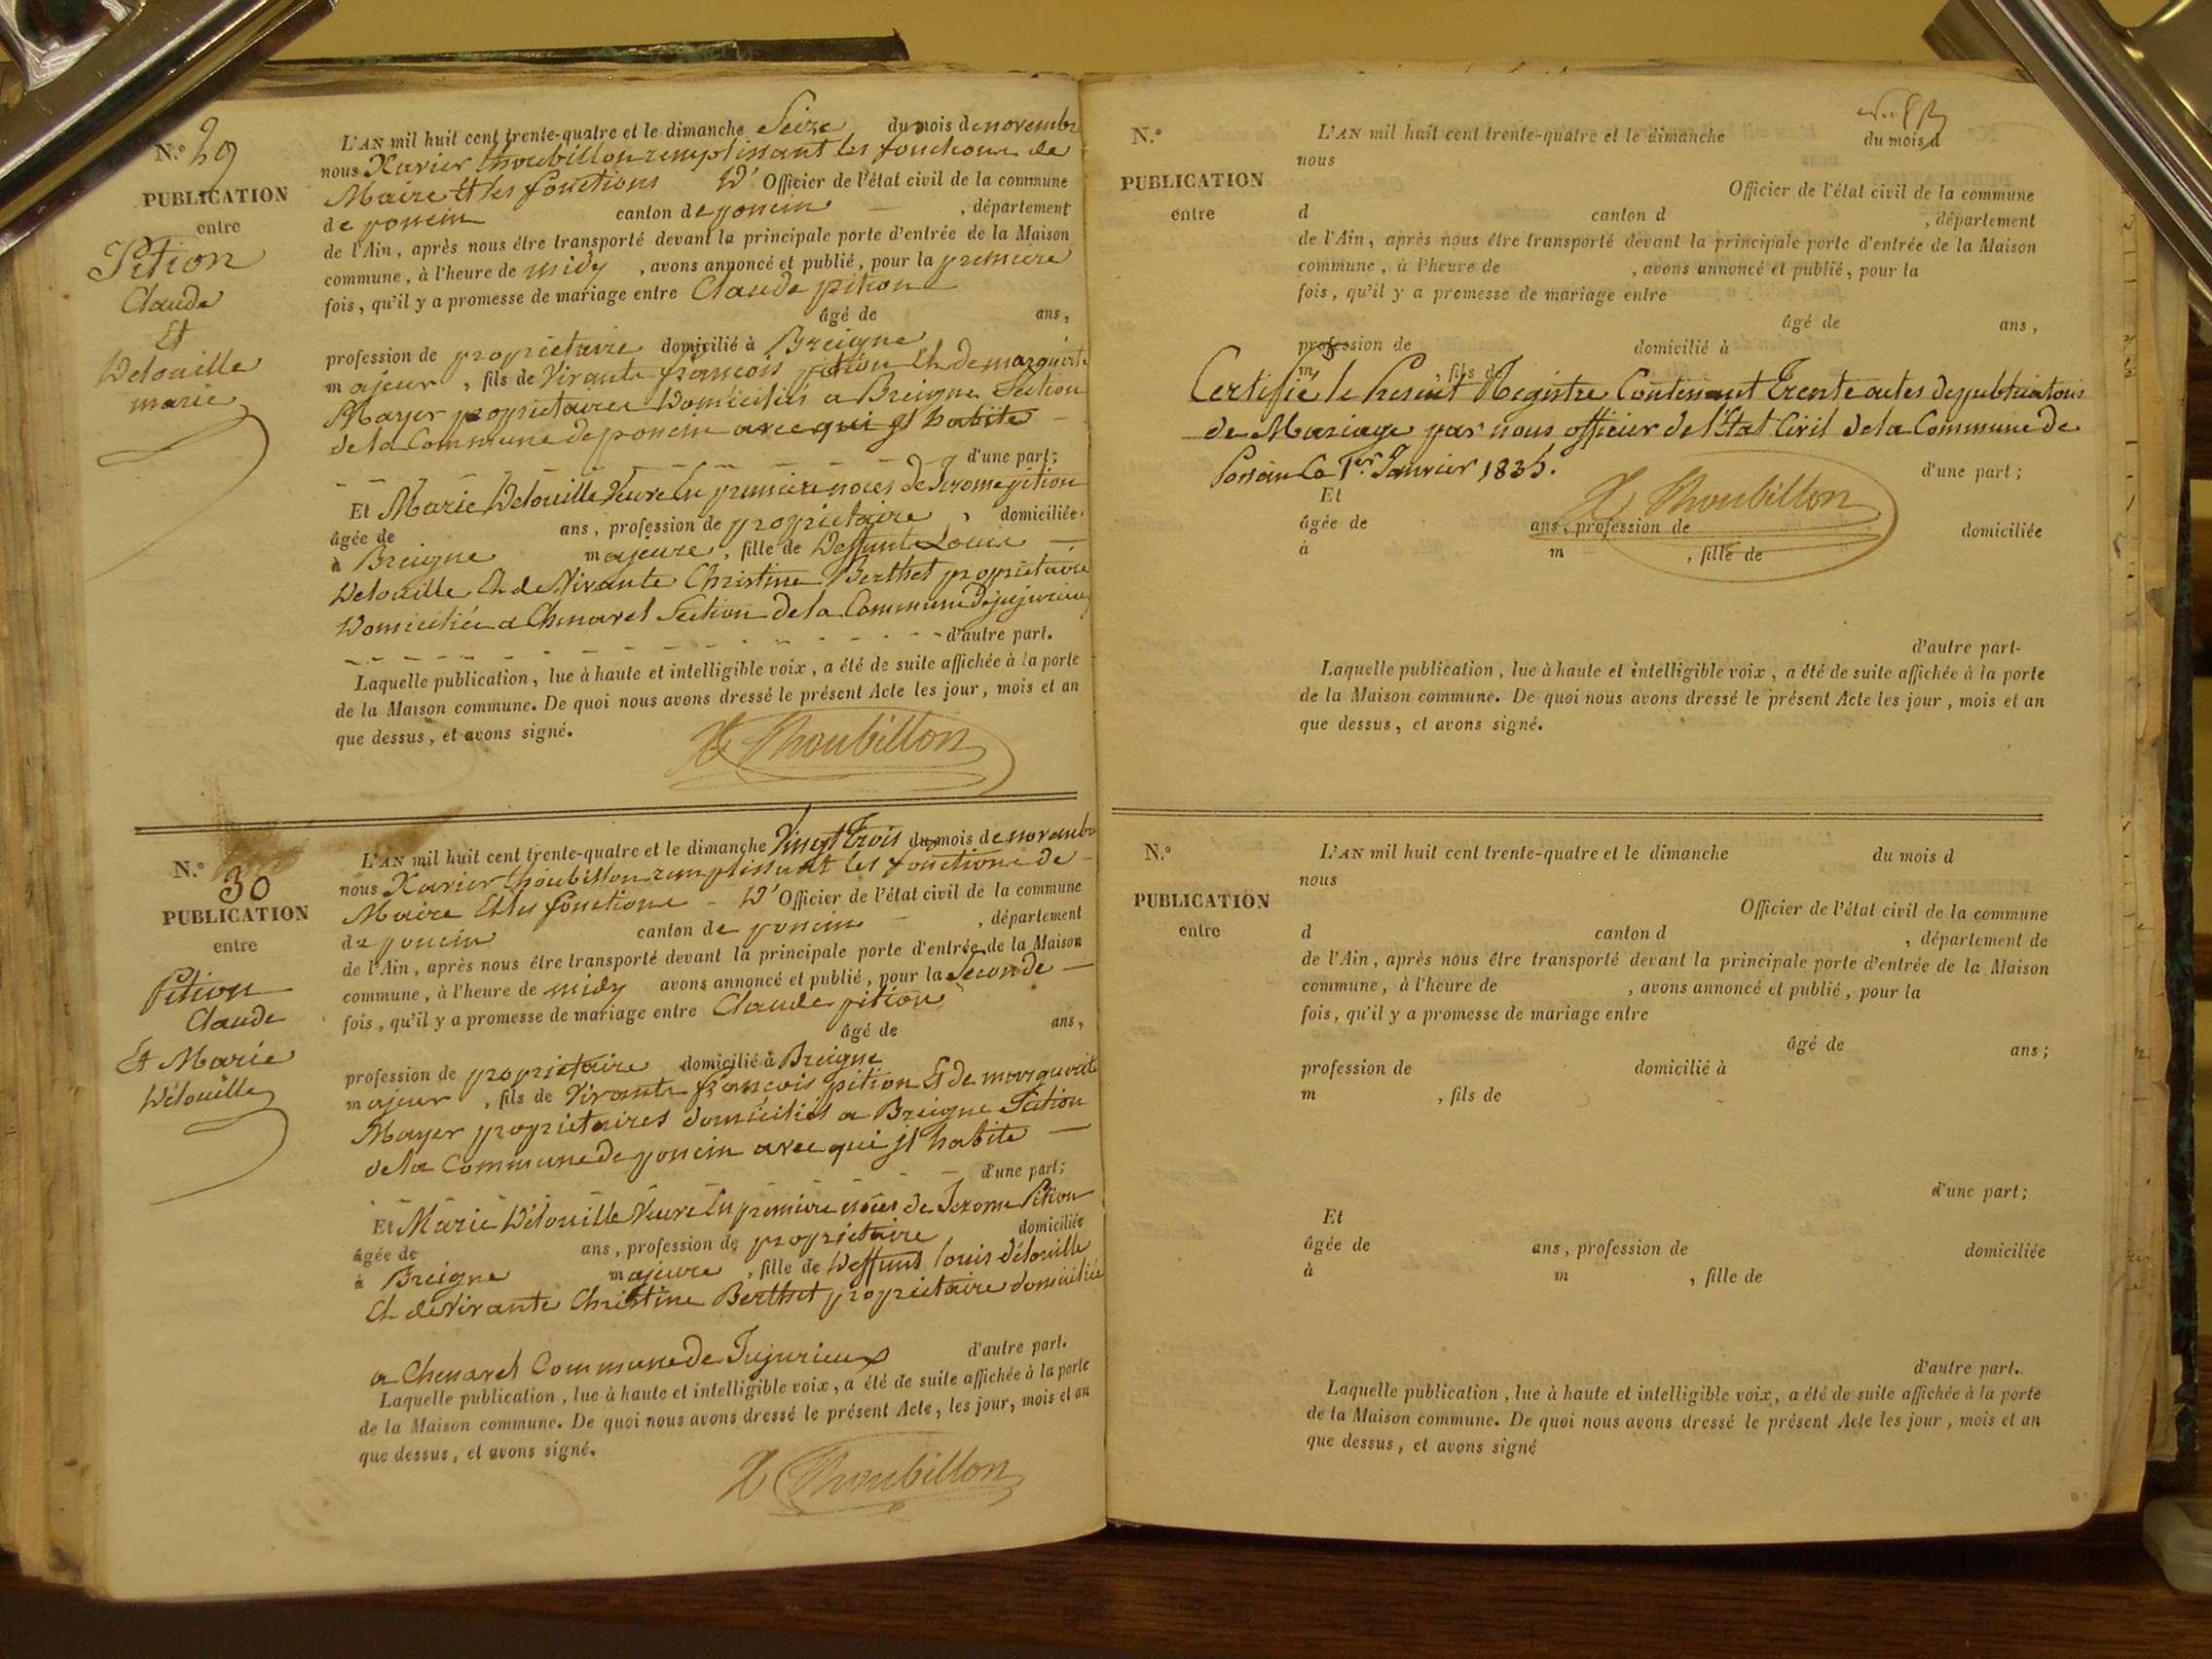 N.° 29
PUBLICATION
entre
Pition
Claude
Et
Delouille
marie
L'AN mil huit cent trente-quatre et le dimanche Seize du mois de novembre
nous Xavier Thoubillon remplissant les fonctions de
Maire Et les fonctions D' Officier de l'état civil de la commune
de poncin canton de poncin , département
de l'Ain, après nous être transporté devant la principale porte d'entrée de la Maison
commune, à l'heure de midy , avons annoncé et publié, pour la premiere
fois, qu'il y a promesse de mariage entre Claude pition
âgé de ans,
profession de proprietaire domicilié à Breigne
majeur , fils de Vivants françois pition Et de marguerite
Mayer proprietaires Domiciliés a Breigne Section
de la Commune de poncin avec qui jl habite
d'une part;
Et Marie Delouille Veuve En premiere noces de Jerome pition
âgée de ans, profession de proprietaire , domiciliée
à Breigne majeure , fille de Deffunt Louis
Delouille Et de Vivante Christine Berthet proprietaire
Domiciliée a Chenavel Section de la Commune de jujurieux
d'autre part.
Laquelle publication, lue à haute et intelligible voix, a été de suite affichée à la porte
de la Maison commune. De quoi nous avons dressé le présent Acte les jour, mois et an
que dessus, et avons signé.
X Thoubillon
N.° 30
PUBLICATION
entre
Pition
Claude
Et Marie
Délouille
L'AN mil huit cent trente-quatre et le dimanche Vingt Trois du mois de novembre
nous Xavier Thoubillon remplissant les fonctions de
Maire Et les fonctions D' Officier de l'état civil de la commune
de poncin canton de poncin , département
de l'Ain, après nous être transporté devant la principale porte d'entrée de la Maison
commune, à l'heure de midy avons annoncé et publié, pour la Seconde
fois, qu'il y a promesse de mariage entre Claude pition
âgé de ans,
profession de proprietaire domicilié à Breigne
majeur , fils de Vivants françois pition Et de marguerite
Mayer proprietaires domiciliés a Breigne Section
de la Commune de poncin avec qui jl habite
d'une part;
Et Marie Délouille Veuve En premiere noces de Jerome Pition
âgée de ans, profession de proprietaire domiciliée
à Breigne majeure , fille de Deffunt louis Délouille
Et de Vivante Christine Berthet proprietaire domiciliée
a Chenavel Commune de Jujurieux d'autre part.
Laquelle publication, lue à haute et intelligible voix, a été de suite affichée à la porte
de la Maison commune. De quoi nous avons dressé le présent Acte, les jour, mois et an
que dessus, et avons signé.
X Thoubillon
N.°
PUBLICATION
entre
L'AN mil huit cent trente-quatre et le dimanche du mois d
nous
Officier de l'état civil de la commune
d canton d , département
de l'Ain, après nous être transporté devant la principale porte d'entrée de la Maison
commune, à l'heure de , avons annoncé et publié, pour la
fois, qu'il y a promesse de mariage entre
âgé de ans,
profession de domicilié à
m , fils d
Certifié le Present Registre Contenant Trente actes de publications
de Mariage par nous officier de l'Etat Civil de la Commune de
Poncin Le 1er Janvier 1835.
X Thoubillon
d'une part;
Et
âgée de ans, profession de domiciliée
à m , fille de
d'autre part.
Laquelle publication, lue à haute et intelligible voix, a été de suite affichée à la porte
de la Maison commune. De quoi nous avons dressé le présent Acte les jour, mois et an
que dessus, et avons signé.
N.°
PUBLICATION
entre
L'AN mil huit cent trente-quatre et le dimanche du mois d
nous
Officier de l'état civil de la commune
d canton d , département de
de l'Ain, après nous être transporté devant la principale porte d'entrée de la Maison
commune, à l'heure de , avons annoncé et publié, pour la
fois, qu'il y a promesse de mariage entre
âgé de ans;
profession de domicilié à
m , fils de
d'une part;
Et
âgée de ans, profession de domiciliée
à m , fille de
d'autre part.
Laquelle publication, lue à haute et intelligible voix, a été de suite affichée à la porte
de la Maison commune. De quoi nous avons dressé le présent Acte les jour, mois et an
que dessus, et avons signé